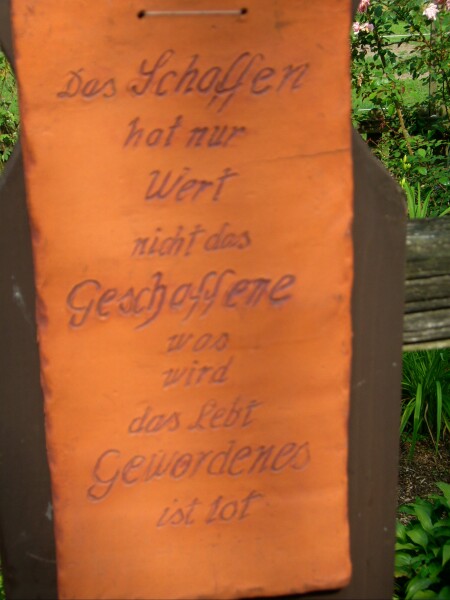 Das Schaffen
hat nur
Wert
nicht das
Geschaffene
was
wird
das Lebt
Gewordenes
ist tot